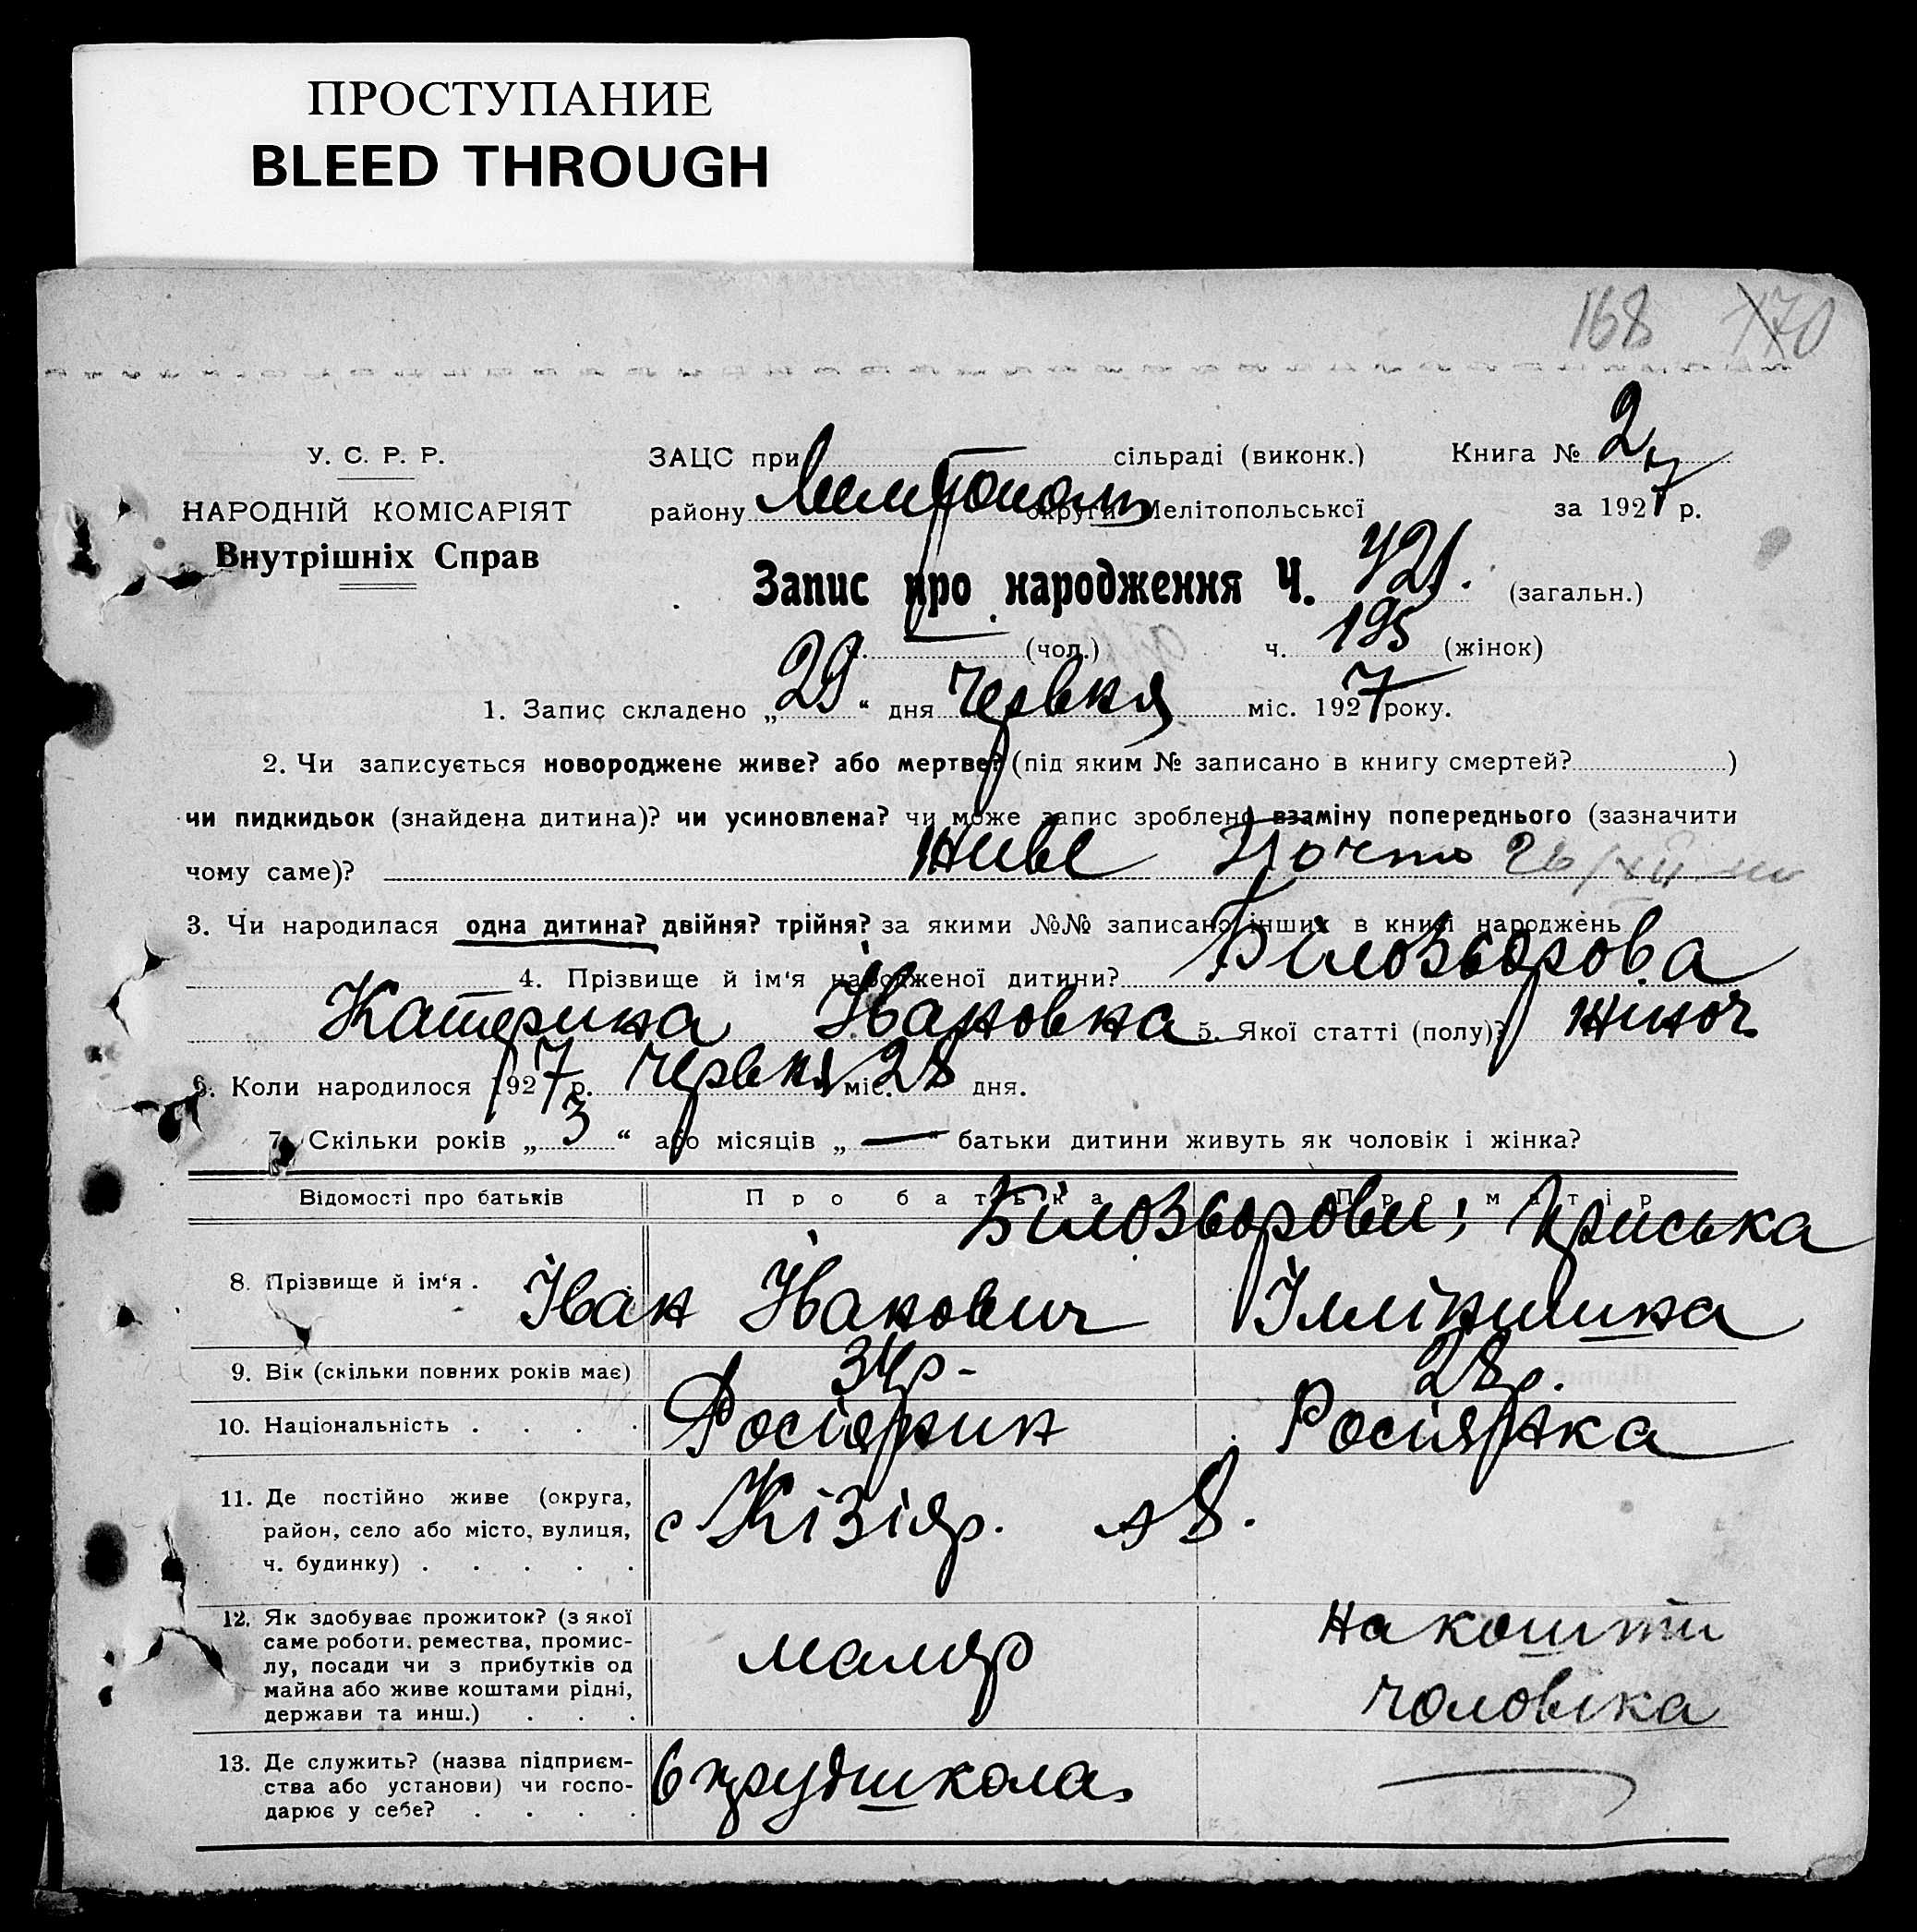 ПРОСТУПАНИЕ
BLEED THROUGH
168 170
У. С. Р. Р.
НАРОДНІЙ КОМІСАРІЯТ
Внутрішніх Справ
ЗАЦС при сільраді (виконк.) Книга № 2
району Мелітополь округи Мелітопольської за 1927 р.
Запис про народження Ч. 421. (загальн.)
(чол.) ч. 195 (жінок)
1. Запис складено „29“ дня Червня міс. 1927 року.
2. Чи записується новороджене живе? або мертве? (під яким № записано в книгу смертей? )
чи пидкидьок (знайдена дитина)? чи усиновлена? чи може запис зроблено взаміну попереднього (зазначити
чому саме)? живе
3. Чи народилася одна дитина? двійня? трійня? за якими №№ записано інших в книзі народжень
4. Прізвище й ім‘я народженої дитини? Білозьорова
Катерина Івановна 5. Якої статті (полу)? жіноч
6. Коли народилося 1927 р. Червня міс. 28 дня.
7. Скільки років „3“ або місяців „—“ батьки дитини живуть як чоловік і жінка?
Відомості про батьків Про батька Про матір
Білозьорови; Приська
8. Прізвище й ім‘я . Іван Іванович Іллінишна
9. Вік (скільки повних років має) 34р- 28р.
10. Національність . . . . Росіянин Росіянка
11. Де постійно живе (округа,
район, село або місто, вулиця,
ч. будинку) . . . . .
с Кізіяр. 8.
12. Як здобуває прожиток? (з якої
саме роботи. ремества, промис-
лу, посади чи з прибутків од
майна або живе коштами рідні,
держави та инш.) . . .
маляр
на кошти
чоловіка
13. Де служить? (назва підприєм-
ства або установи) чи госпо-
дарює у себе? . . . .
6 трудшкола.